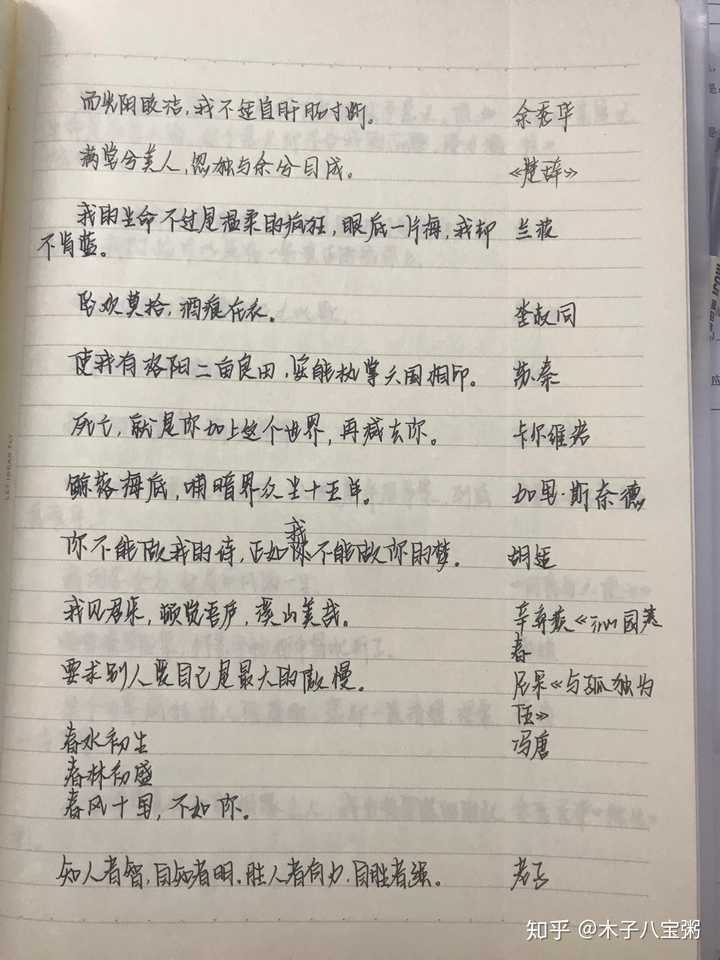 而光阴皎洁，我不适自肝肠寸断。 余秀华
满堂兮美人，忽独与余兮目成。 《楚辞》
我的生命不过是温柔的疯狂，眼底一片海，我却 兰波
不肯蓝。
自欢莫拾，酒痕在衣。 李叔同
使我有洛阳二亩良田，安能执掌六国相印。 苏秦
死亡，就是你加上这个世界，再减去你。 卡尔维诺
鲸落海底，哺暗界众生十五年。 加里·斯奈德
我
你不能做我的诗，正如你不能做你的梦。 胡适
我见君来，顿觉吾庐，溪山美哉。 辛弃疾《沁园春
春
要求别人爱自己是最大的傲慢。 尼采《与孤独为
伍》
春水初生 冯唐
春林初盛
春风十里，不如你。
知人者智，自知者明。胜人者有力，自胜者强。 老子
LET INDEX FLY
知乎 @木子八宝粥